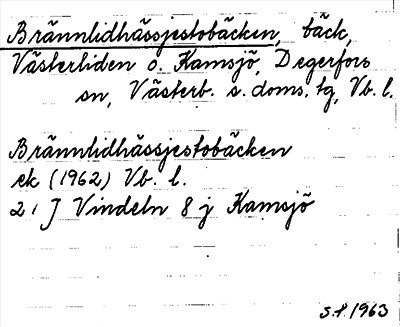 Brännlidhässjestobäcken, bäck,
Västerliden o. Kamsjö, Degerfors
sn, Västerb. s. doms. tg, Vb. l.
Brännlidhässjestobäcken
ek (1962) Vb. l.
21 J Vindeln 8 j Kamsjö
S.f. 1963